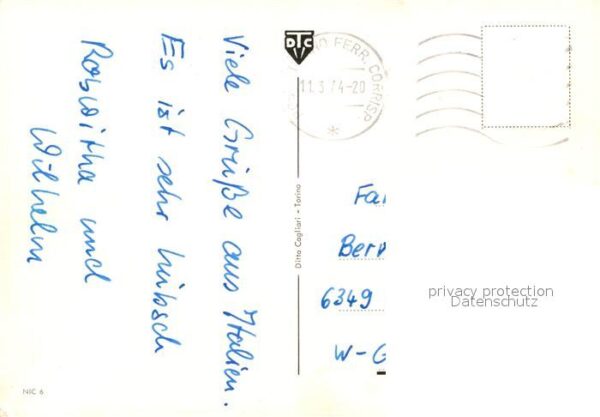 Viele Grüße aus Italien.
Es ist sehr hübsch
Roswitha und
Wilhelm
DTC
FERR. CORRISP.
11.3 74-20
Ditta Cagliari - Torino
Fa
Ber
6349
W-G
privacy protection
Datenschutz
NIC 6